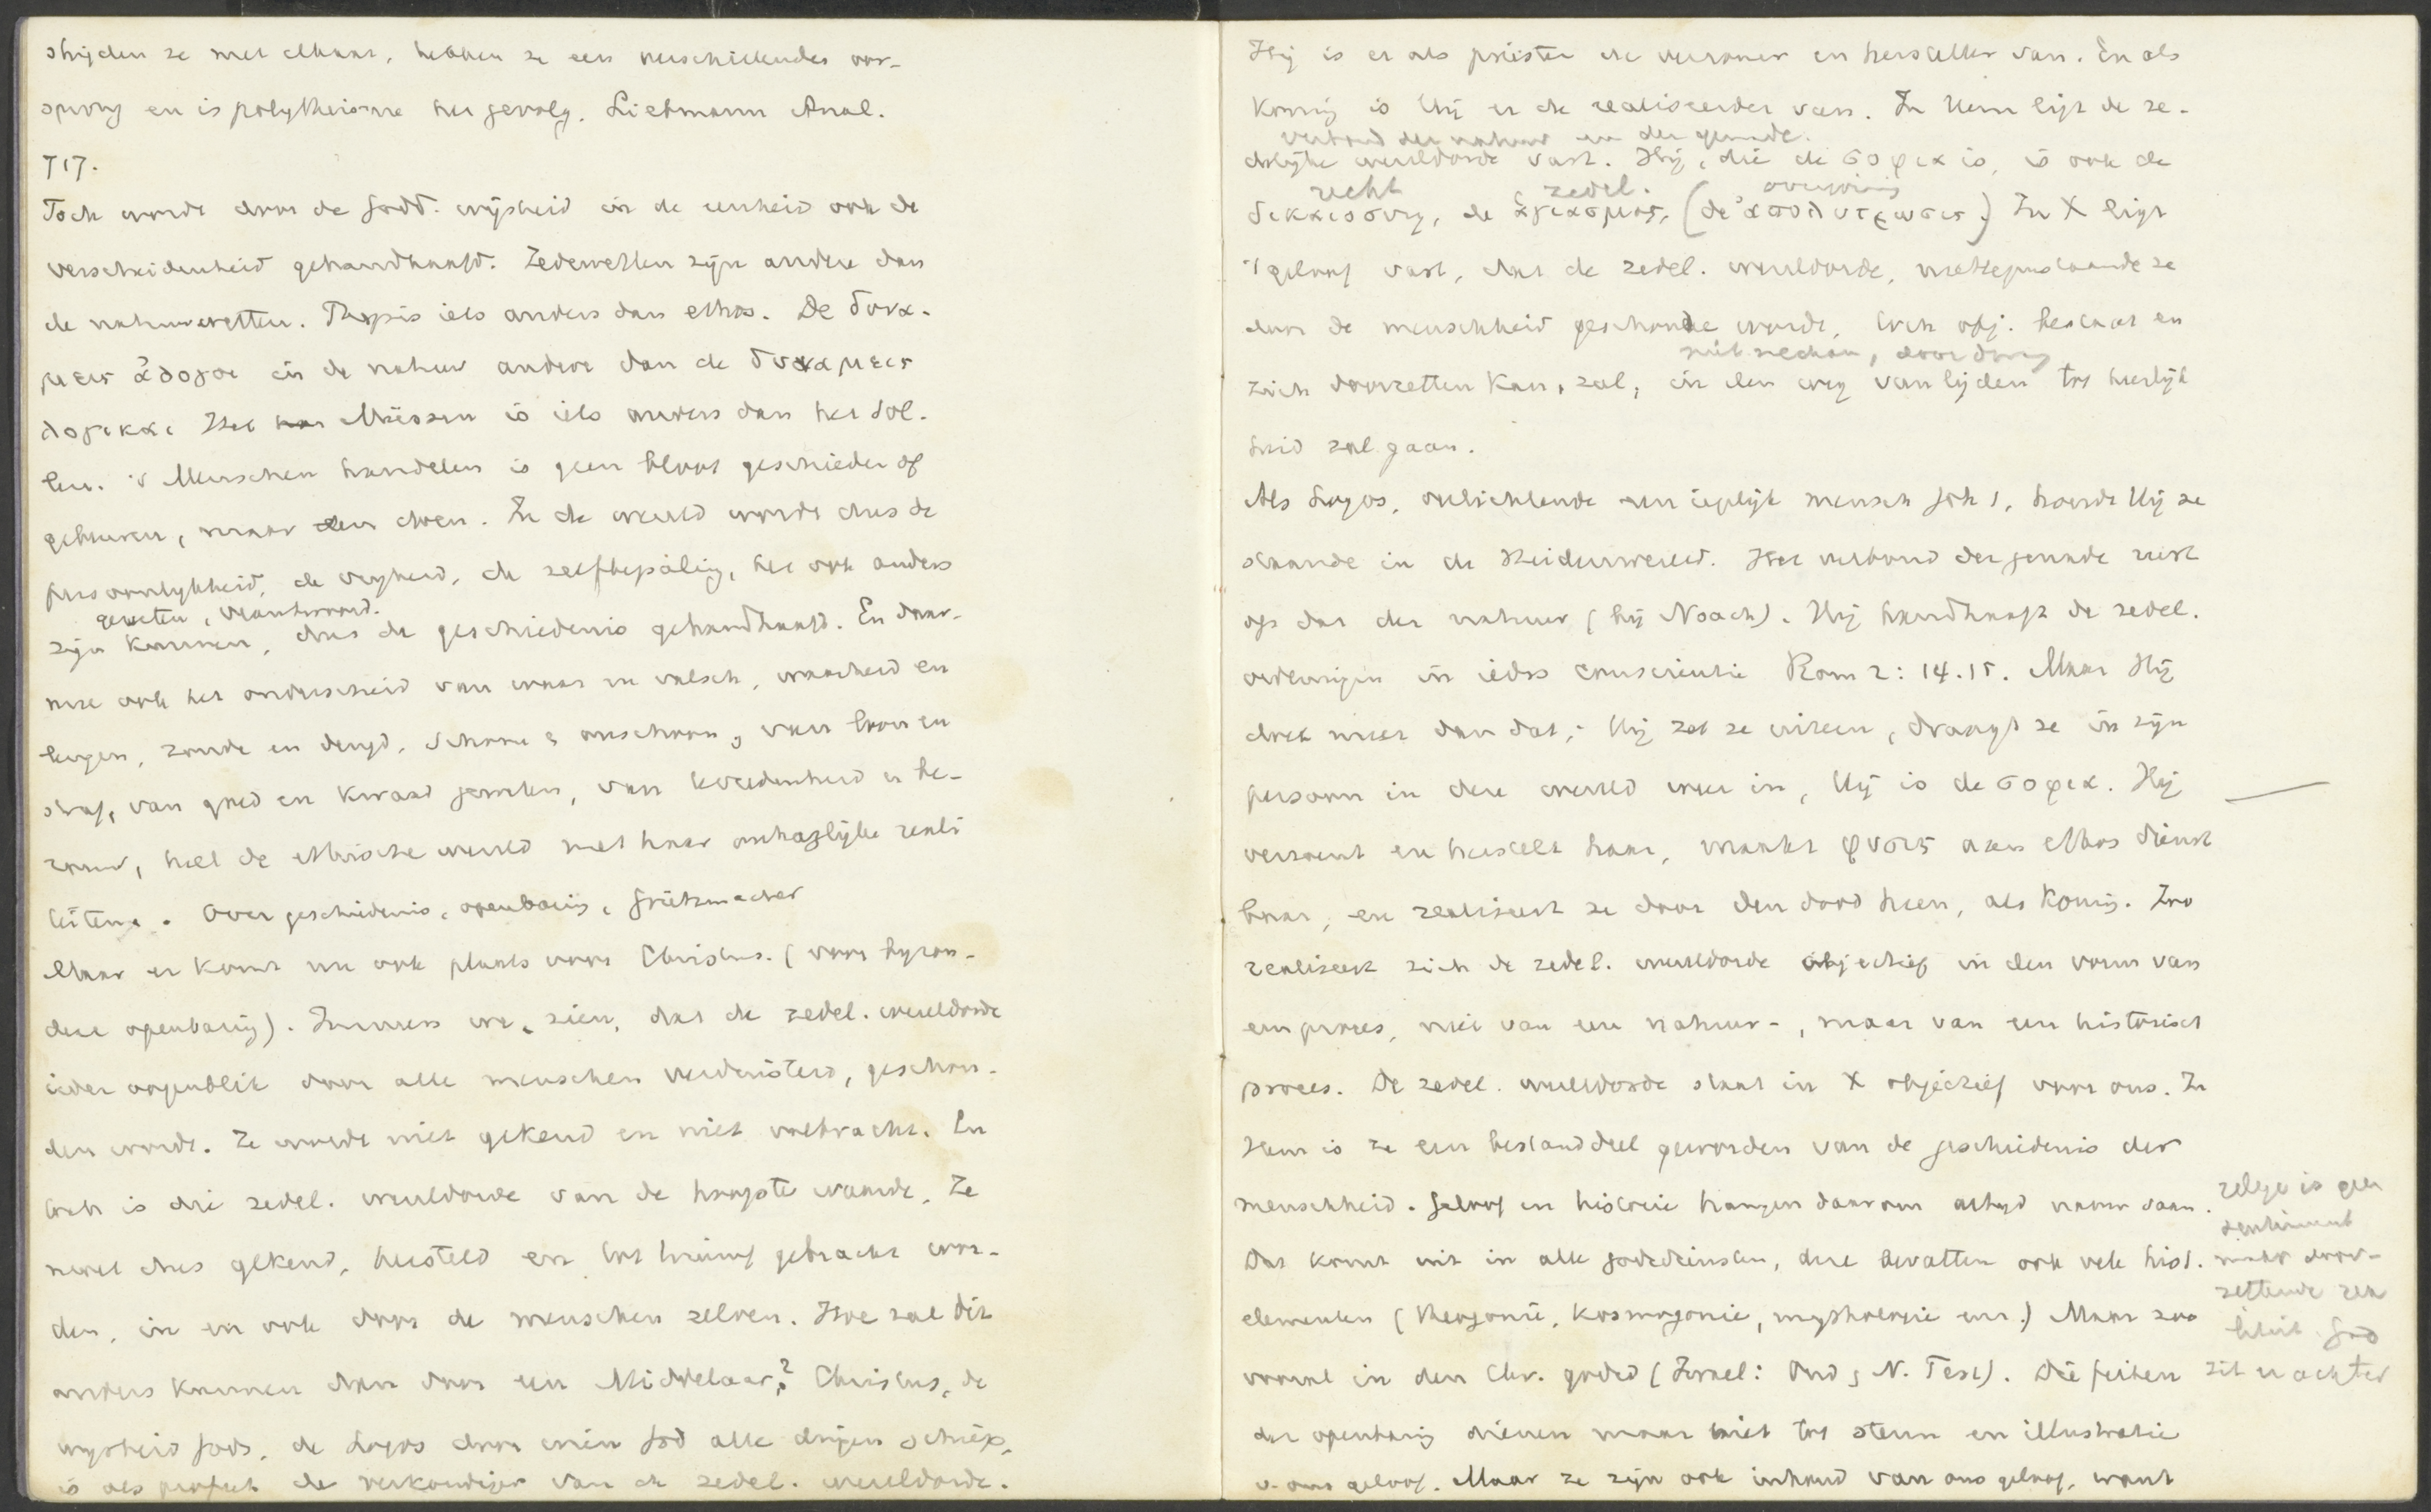 strijden ze met elkaar, hebben ze een verschillenden oor-
sprong en is polytheisme het gevolg. Liebmann Anal.
717.
Toch wordt door de godd. wijsheid in de eenheid ook de
verscheidenheid gehandhaafd. Zedewetten zijn andere dan
de natuurwetten. Physis iets anders dan ethos. De δυνα-
μεις ἀλογοι in de natuur andere dan de δυναμεις
λογικαι Het Müssen is iets anders dan het Sol-
len. 's Menschen handelen is geen bloot geschieden of
gebeuren, maar een doen. In de wereld wordt dus de
persoonlijkheid, de vrijheid, de zelfbepaling, het ook anders
geweten, verantwoord.
zijn kunnen, dus de geschiedenis gehandhaafd. En daar-
mee ook het onderscheid van waar en valsch, waarheid en
leugen, zonde en deugd, schoon & onschoon, van loon en
straf, van goed en kwaad geweten, van tevredenheid en be-
rouw, heel de ethische wereld met haar onhoogelijke reali
teiten. Over geschiedenis, openbaring, Grützmacher
Maar er komt nu ook plaats voor Christus. (voor byzon-
dere openbaring). Immers we zien, dat de zedel. wereldorde
ieder oogenblik door alle menschen verduisterd, geschon-
den wordt. Ze wordt niet gekend en niet volbracht. En
toch is die zedel. wereldorde van de hoogste waarde. Ze
moet dus gekend, hersteld en tot triumf gebracht wor-
den, in en ook door de menschen zelven. Hoe zal dit
anders kunnen dan door een Middelaar? Christus, de
wijsheid Gods, de Logos door wien God alle dingen schiep,
is als profeet de verkondiger van de zedel. wereldorde.
Hij is er als priester de verzoener en hersteller van. En als
Koning is Hij er de realiseerder van. In Hem ligt de ze-
verbond der natuur en der genade.
delijke wereldorde vast. Hij, die de σοφια is, is ook de
recht zedel. overwinning
δικαιοσυνη, de ἁγιασμος, (de ἀπολυτρωσις.) In X ligt
't geloof vast, dat de zedel. wereldorde, niettegenstaande ze
door de menschheid geschonden wordt, toch obj. bestaat en
niet mechan, doordring
zich doorzetten kan, zal, in den weg van lijden tot heerlijk
heid zal gaan.
Als Logos, verlichtende een iegelijk mensch Joh 1, hoorde Hij ze
staande in de Heidenwereld. Het verbond der genade rust
op dat der natuur (bij Noach). Hij handhaaft de zedel.
ordeningen in ieders conscientie Rom 2:14.15. Maar Hij
doet meer dan dat; Hij zet ze uiteen, draagt ze in zijn
persoon in deze wereld weer in, Hij is de σοφια. Hij
verzoent en herstelt haar, maakt φυσις aan ethos dienst
baar, en realiseert ze door den dood heen, als Koning. Zoo
realiseert zich de zedel. wereldorde objectief in den vorm van
een proces, niet van een natuur-, maar van een historisch
proces. De zedel. wereldorde staat in X objectief voor ons. In
Hem is ze een bestanddeel geworden van de geschiedenis der
menschheid. Geloof en historie hangen daarom altijd nauw saam.
Dat komt uit in alle godsdiensten, deze bevatten ook vele hist.
elementen (theogonie, kosmogonie, mythologie enz.) Maar zoo
vooral in den Chr. godsd (Israel: Oud & N. Test). Die feiten
der openbaring dienen maar niet tot steun en illustratie
v. ons geloof. Maar ze zijn ook inhoud van ons geloof, want
religie is geen
sentiment
maar door-
zettende rea
liteit. God
zit er achter